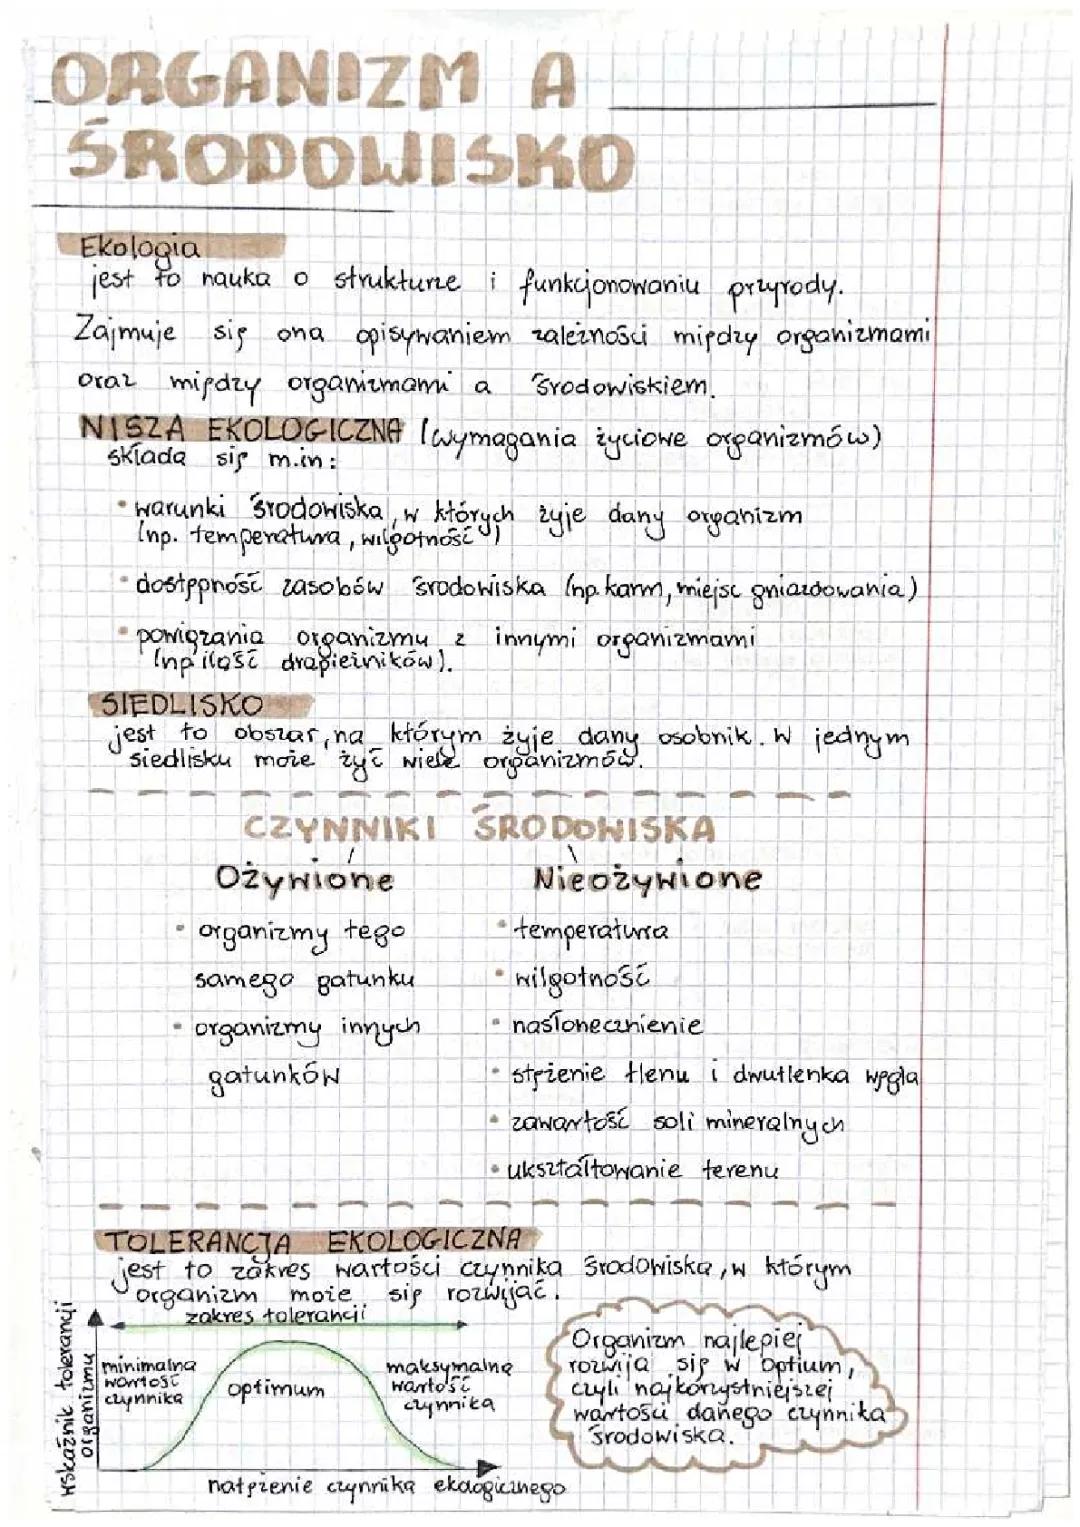 ORGANIZM A
ŚRODOWISKO
Ekologia
jest to nauka o strukturze i funkcjonowaniu przyrody.
Zajmuje się ona opisywaniem zależności między organizmami
oraz między organizmami a środowiskiem.
NISZA EKOLOGICZNA (wymagania życiowe organizmów)
składa się m.in:
• warunki środowiska, w których żyje dany organizm
(np. temperatura, wilgotność)
• dostępność zasobów środowiska (np. karm, miejsc gniazdowania)
• powiązania organizmu z innymi organizmami
(np ilość drapieżników).
SIEDLISKO
jest to obszar, na którym żyje dany osobnik. W jednym
siedlisku może żyć wiele organizmów.
CZYNNIKI ŚRODOWISKA
Ożywione Nieożywione
• organizmy tego • temperatura
samego gatunku • wilgotność
• organizmy innych • nasłonecznienie
gatunków • stężenie tlenu i dwutlenka węgla
• zawartość soli mineralnych
• ukształtowanie terenu
TOLERANCJA EKOLOGICZNA
jest to zakres wartości czynnika środowiska, w którym
organizm może się rozwijać.
zakres tolerancji
wskaźnik tolerancji
organizmu
minimalna
wartość
czynnika
optimum
maksymalna
wartość
czynnika
natężenie czynnika ekologicznego
Organizm najlepiej
rozwija się w optium,
czyli najkorzystniejszej
wartości danego czynnika
środowiska.